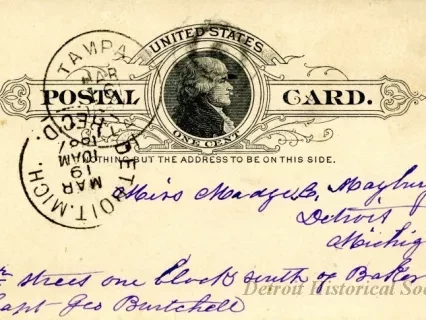 UNITED STATES
POSTAL CARD.
ONE CENT
NOTHING BUT THE ADDRESS TO BE ON THIS SIDE.
TAMPA
MAR
DETROIT. MICH.
MAR
19
10AM
1887
REC'D.
Miss Madge G. Maybury
Detroit
Michig
street one block south of Baker
Capt Geo Burtchell
Detroit Historical Soc